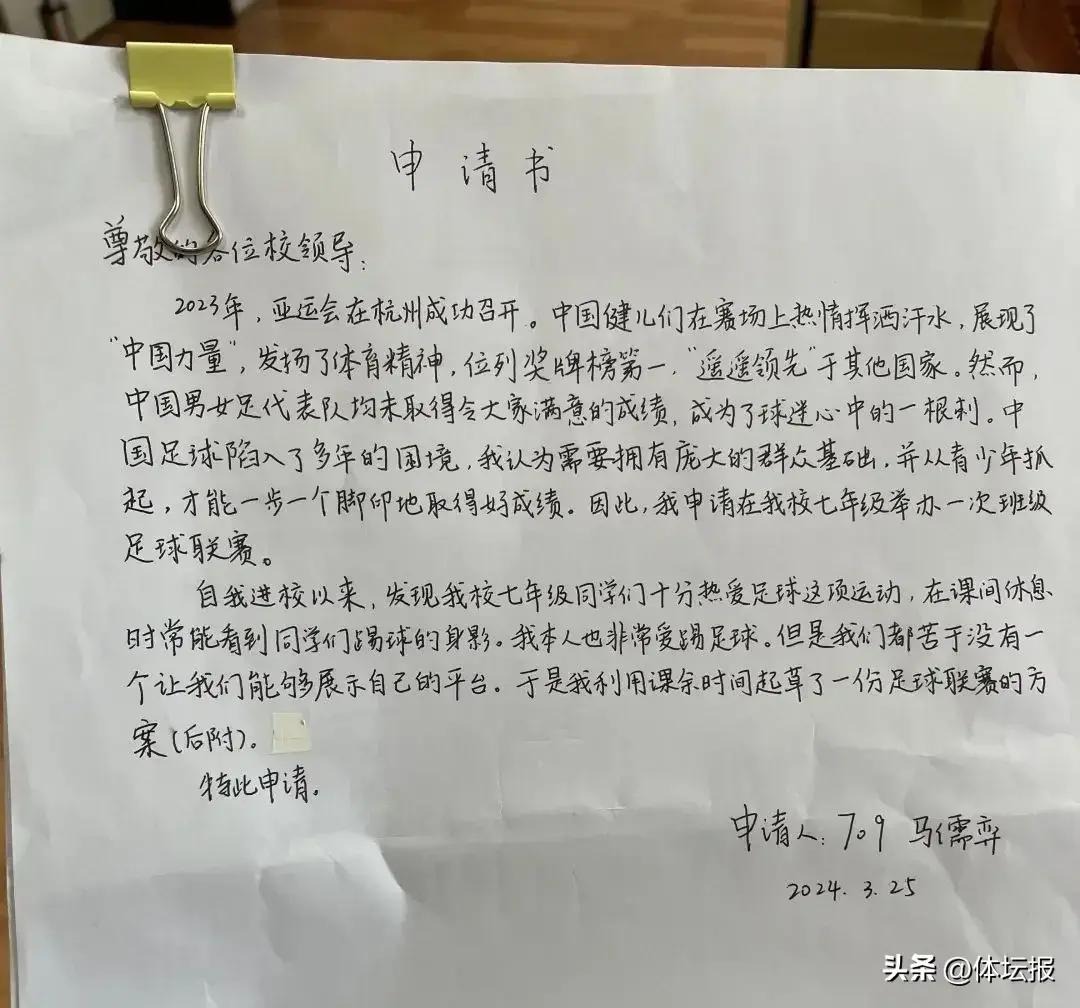 申请书
尊敬的各位校领导：
2023年，亚运会在杭州成功召开。中国健儿们在赛场上热情挥洒汗水，展现了
“中国力量”，发扬了体育精神，位列奖牌榜第一，“遥遥领先”于其他国家。然而，
中国男女足代表队均未取得令大家满意的成绩，成为了球迷心中的一根刺。中
国足球陷入了多年的困境，我认为需要拥有庞大的群众基础，并从青少年抓
起，才能一步一个脚印地取得好成绩。因此，我申请在我校七年级举办一次班级
足球联赛。
自我进校以来，发现我校七年级同学们十分热爱足球这项运动，在课间休息
时常能看到同学们踢球的身影。我本人也非常爱踢足球。但是我们都苦于没有一
个让我们能够展示自己的平台。于是我利用课余时间起草了一份足球联赛的方
案（后附）。
特此申请。
申请人：709 马儒弈
2024.3.25
头条 @体坛报